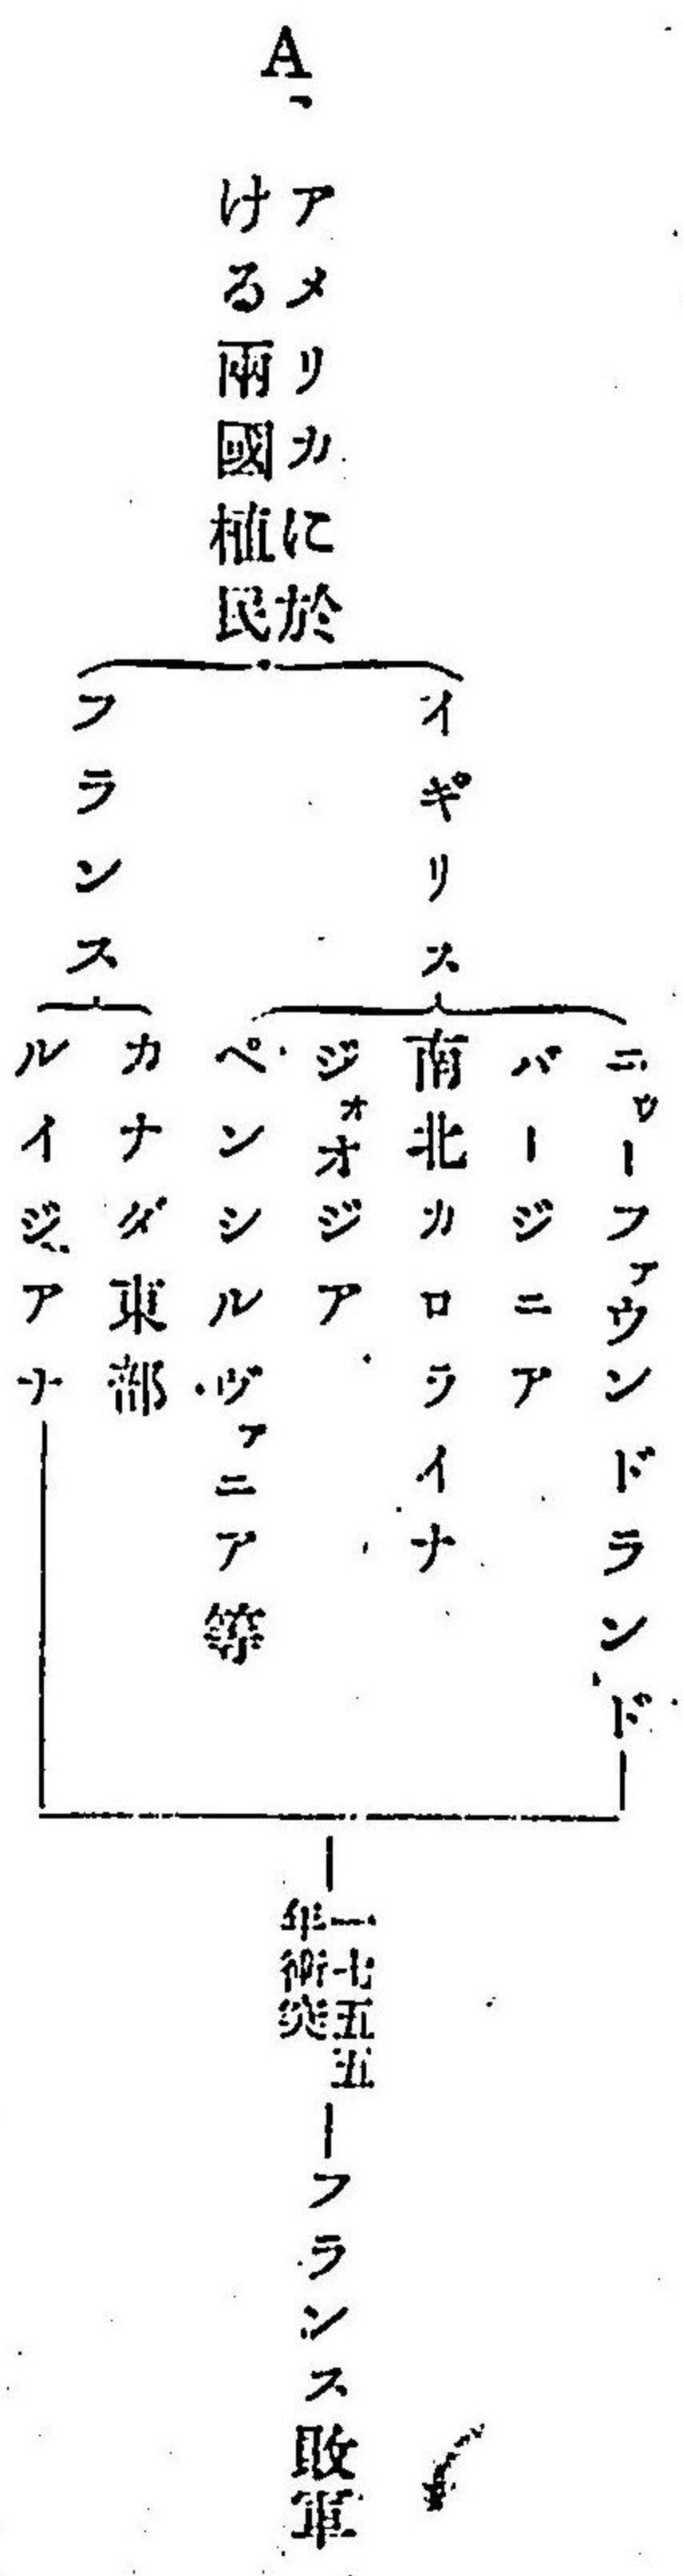 A、
アメリカに於
ける兩國植民
イギリス
ニューファウンドランド
バージニア
南北カロライナ
ジォオジア
ペンシルヴァニア等
フランス
カナダ東部
ルイジアナ
一七五五
年衝突
フランス敗軍